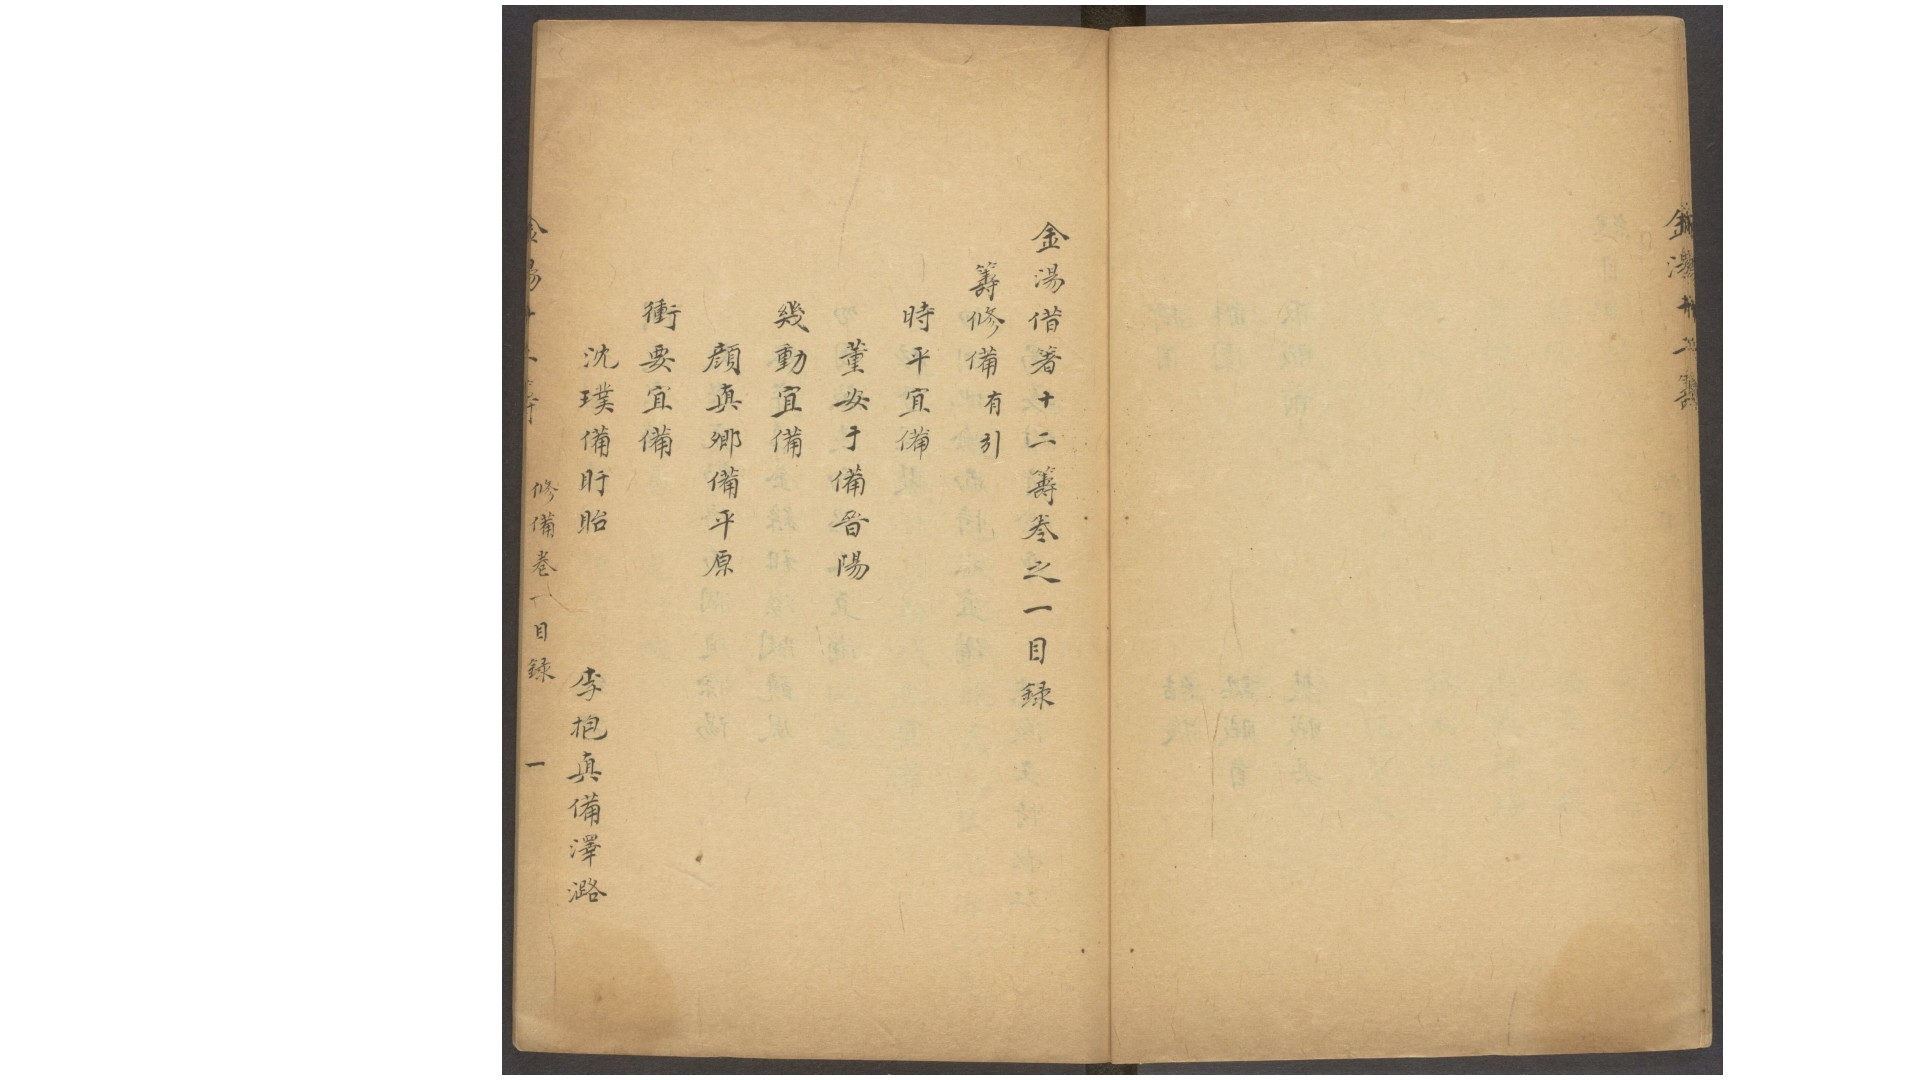 金湯借箸十二籌卷之一目録
籌修備有引
時平宜備
董安于備晉陽
幾動宜備
顔真卿備平原
衝要宜備
沈璞備盱眙
李抱真備澤潞
金湯十二籌
修備卷一目録
一